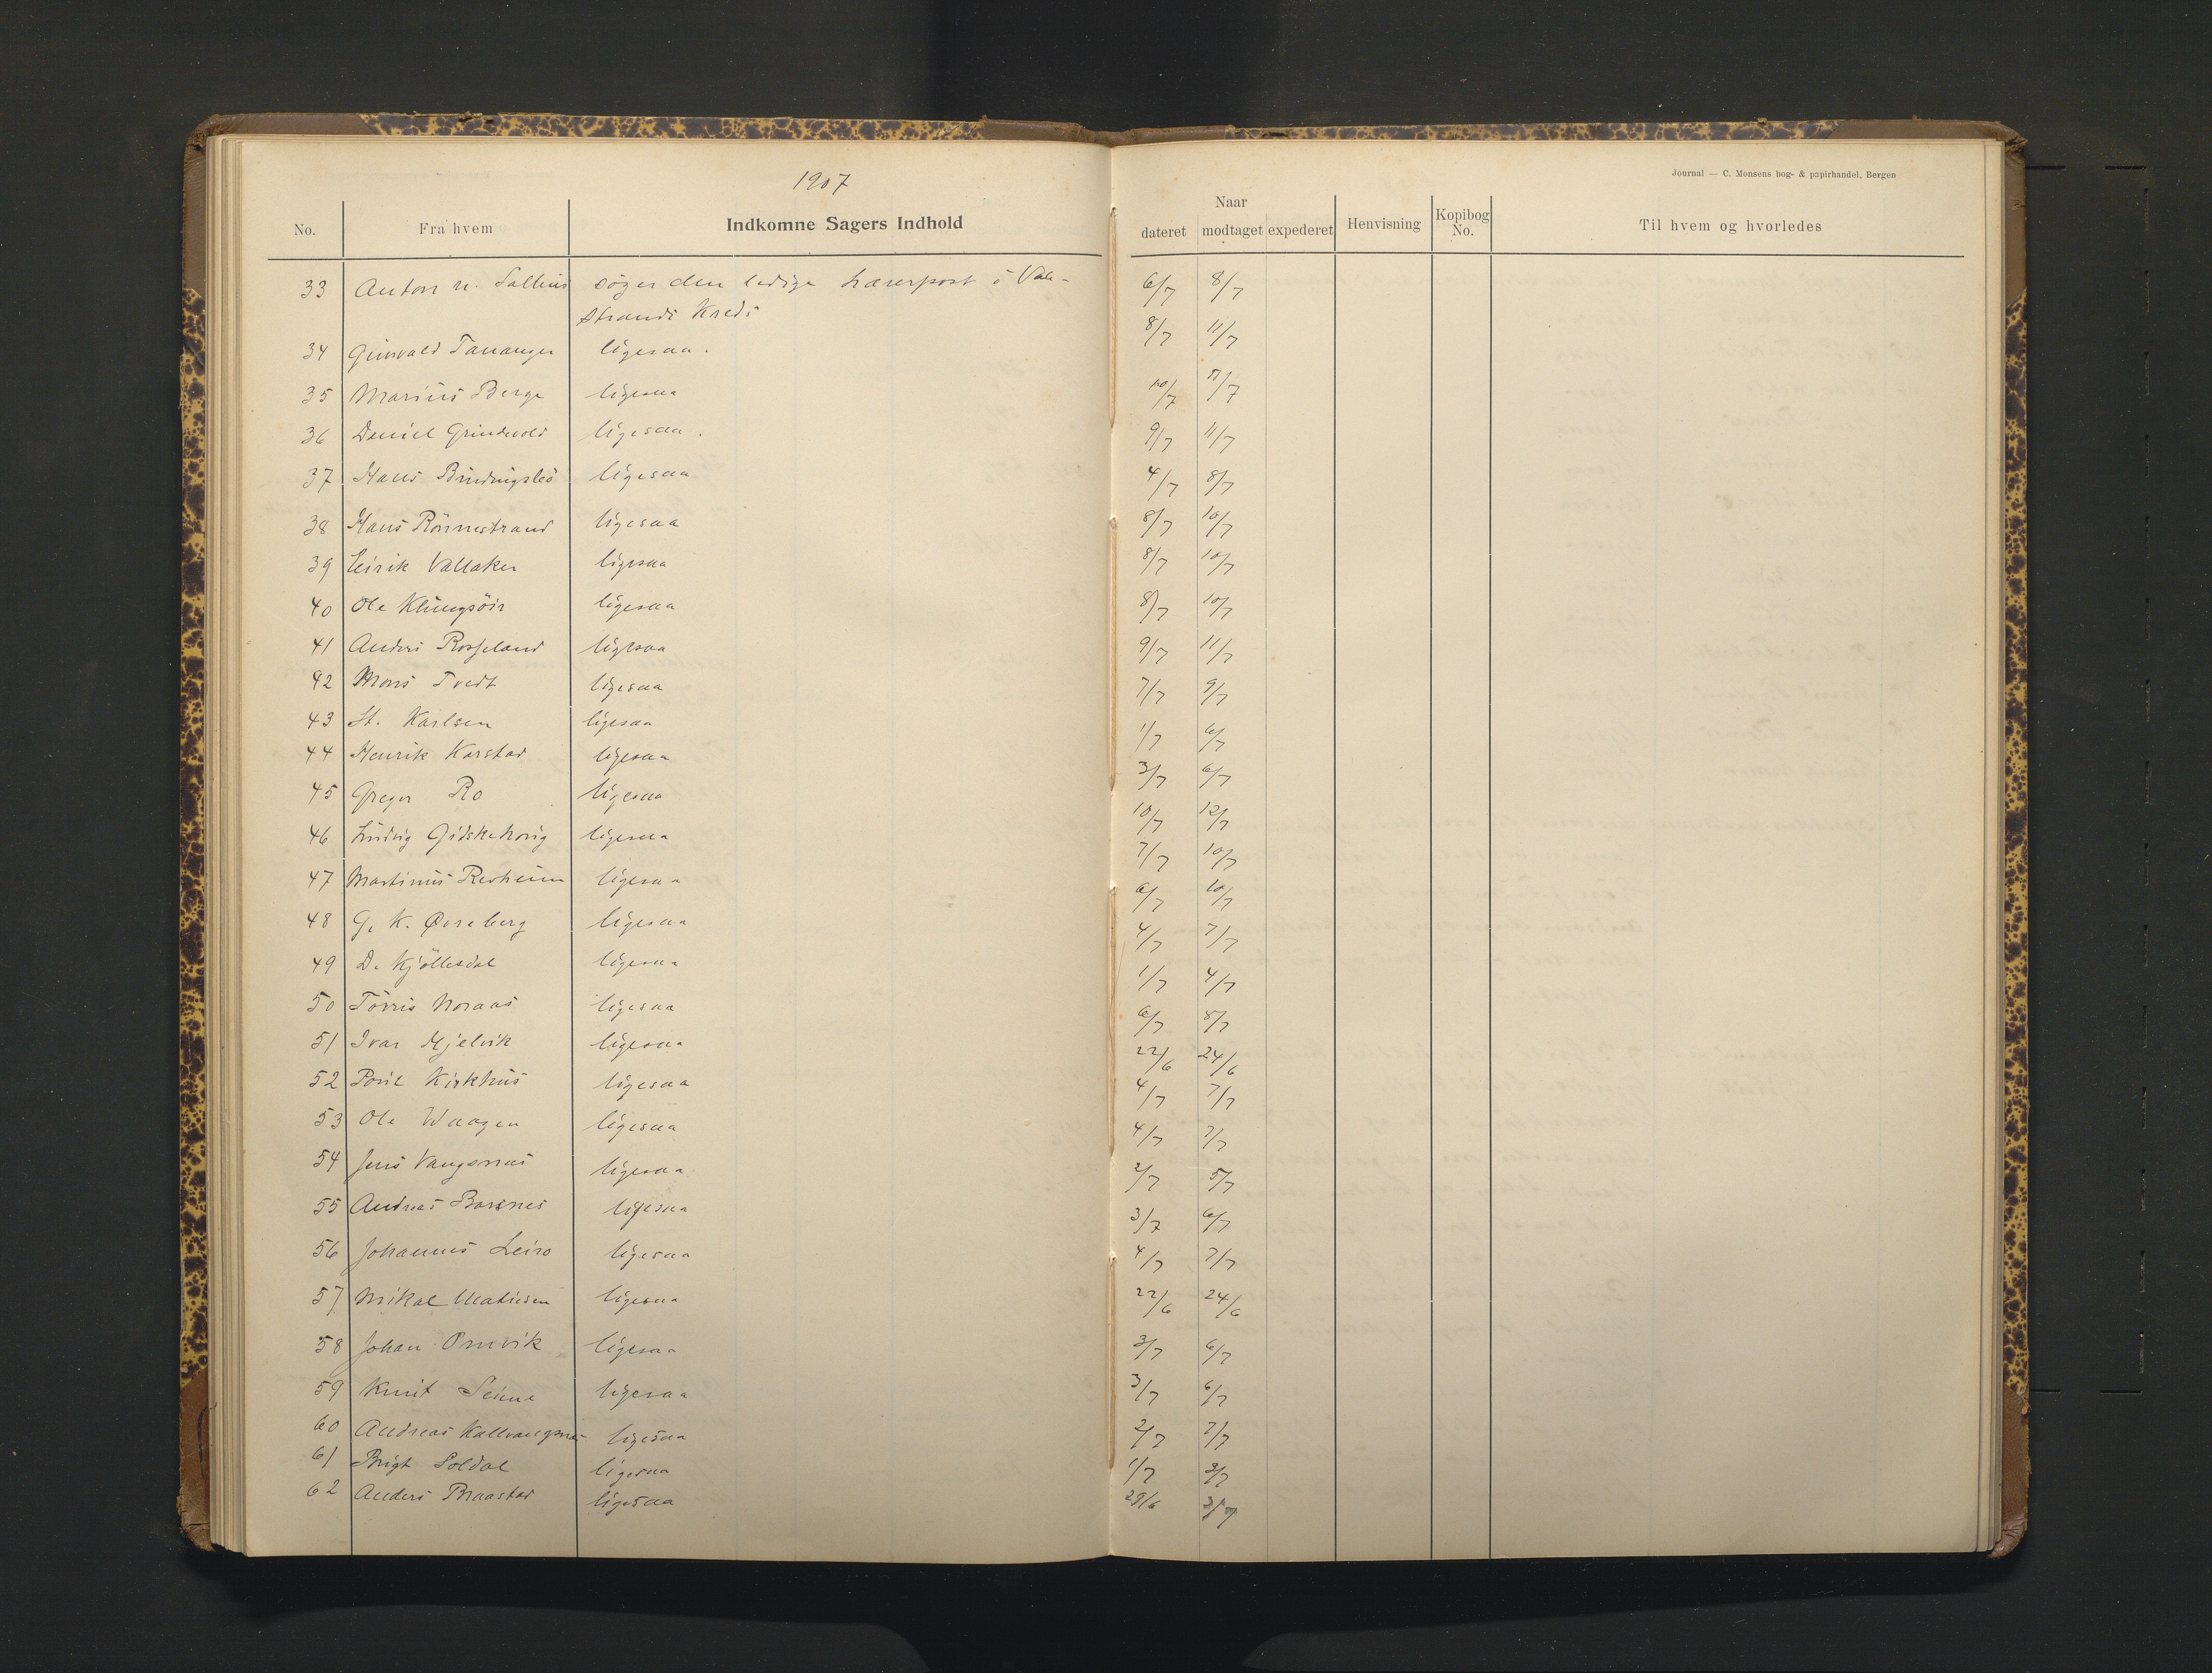 1907
Journal — C. Monsens bog- & papirhandel, Bergen
No. Fra hvem Indkomne Sagers Indhold Naar dateret modtaget expederet Henvisning Kopibog No. Til hvem og hvorledes
33 Anton N. Solhus søger den ledige Lærerpost i Vale- 6/7 8/7
strands Kreds
34 Grimvald Tananger ligesaa. 8/7 11/7
35 Marius Berge ligesaa 10/7 11/7
36 Daniel Grindevold ligesaa. 9/7 11/7
37 Hans Bindingsbø ligesaa 4/7 8/7
38 Hans Rönnestrand ligesaa 8/7 10/7
39 Eirik Vallaker ligesaa 8/7 10/7
40 Ole Klungsöir ligesaa 8/7 10/7
41 Anders Rosseland ligesaa 9/7 11/7
42 Mons Tvedt ligesaa 7/7 9/7
43 St. Karlsen ligesaa 1/7 6/7
44 Henrik Karstad ligesaa 3/7 6/7
45 Greger Ro ligesaa 10/7 12/7
46 Ludvig Gidskehaug ligesaa 7/7 10/7
47 Martinus Resheim ligesaa 6/7 10/7
48 G. K. Øvreberg ligesaa 4/7 7/7
49 D. Kjöllesdal ligesaa 1/7 4/7
50 Törris Noraas ligesaa 6/7 8/7
51 Ivar Mjelvik ligesaa 22/6 24/6
52 Poul Kirkhus ligesaa 4/7 7/7
53 Ole Waagen ligesaa 4/7 7/7
54 Jens Vangsnes ligesaa 2/7 5/7
55 Andreas Barsnes ligesaa 3/7 6/7
56 Johannes Leiro ligesaa 4/7 7/7
57 Mikal Mathisen ligesaa 22/6 24/6
58 Johan Omvik ligesaa 3/7 6/7
59 Knut Seime ligesaa 3/7 6/7
60 Andreas Kallvaagnes ligesaa 2/7 7/7
61 Brigt Soldal ligesaa 1/7 3/7
62 Anders Braastad ligesaa 29/6 3/7